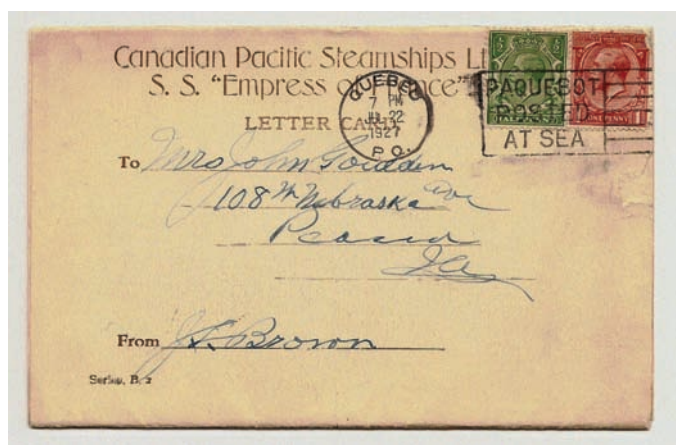 Canadian Pacific Steamships L
S. S. "Empress of
LETTER CARD
QUEBEC
7 PM
JUL 22
1927
P.Q.
PAQUEBOT
POSTED
AT SEA
To Mrs John
108 W Nebraska Ave
From J. Brown
Series, B, 2